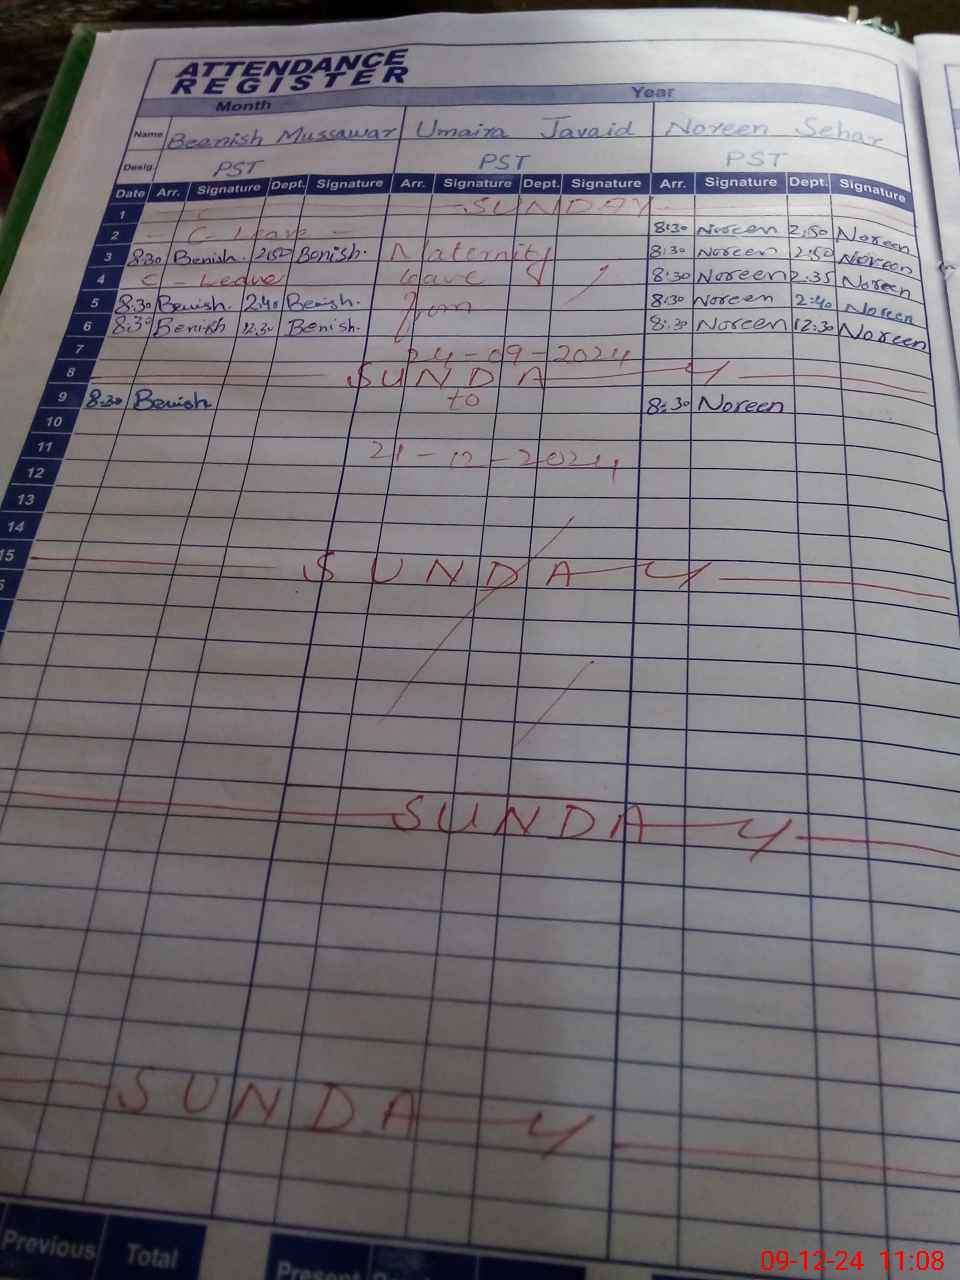 ATTENDANCE
REGISTER
Month Year
Name Beanish Mussawar Umaira Javaid Noreen Sehar
Desig. PST PST PST
Date Arr. Signature Dept. Signature Arr. Signature Dept. Signature Arr. Signature Dept. Signature
1 SUNDAY
2 C- Leave - 8:30 Noreen 2:50 Noreen
3 8:30 Benish. 2:50 Benish. Maternity 8:30 Noreen 2:50 Noreen
4 C - Leave leave 8:30 Noreen 2:35 Noreen
5 8:30 Benish. 2:40 Benish. from 8:30 Noreen 2:40 Noreen
6 8:30 Benish 12:30 Benish. 8:30 Noreen 12:30 Noreen
7 24-09-2024
8 SUNDAY
9 8:30 Benish to 8:30 Noreen
10
11 21-12-2024
12
13
14
15 SUNDAY
SUNDAY
SUNDAY
Previous Total Present
09-12-24 11:08